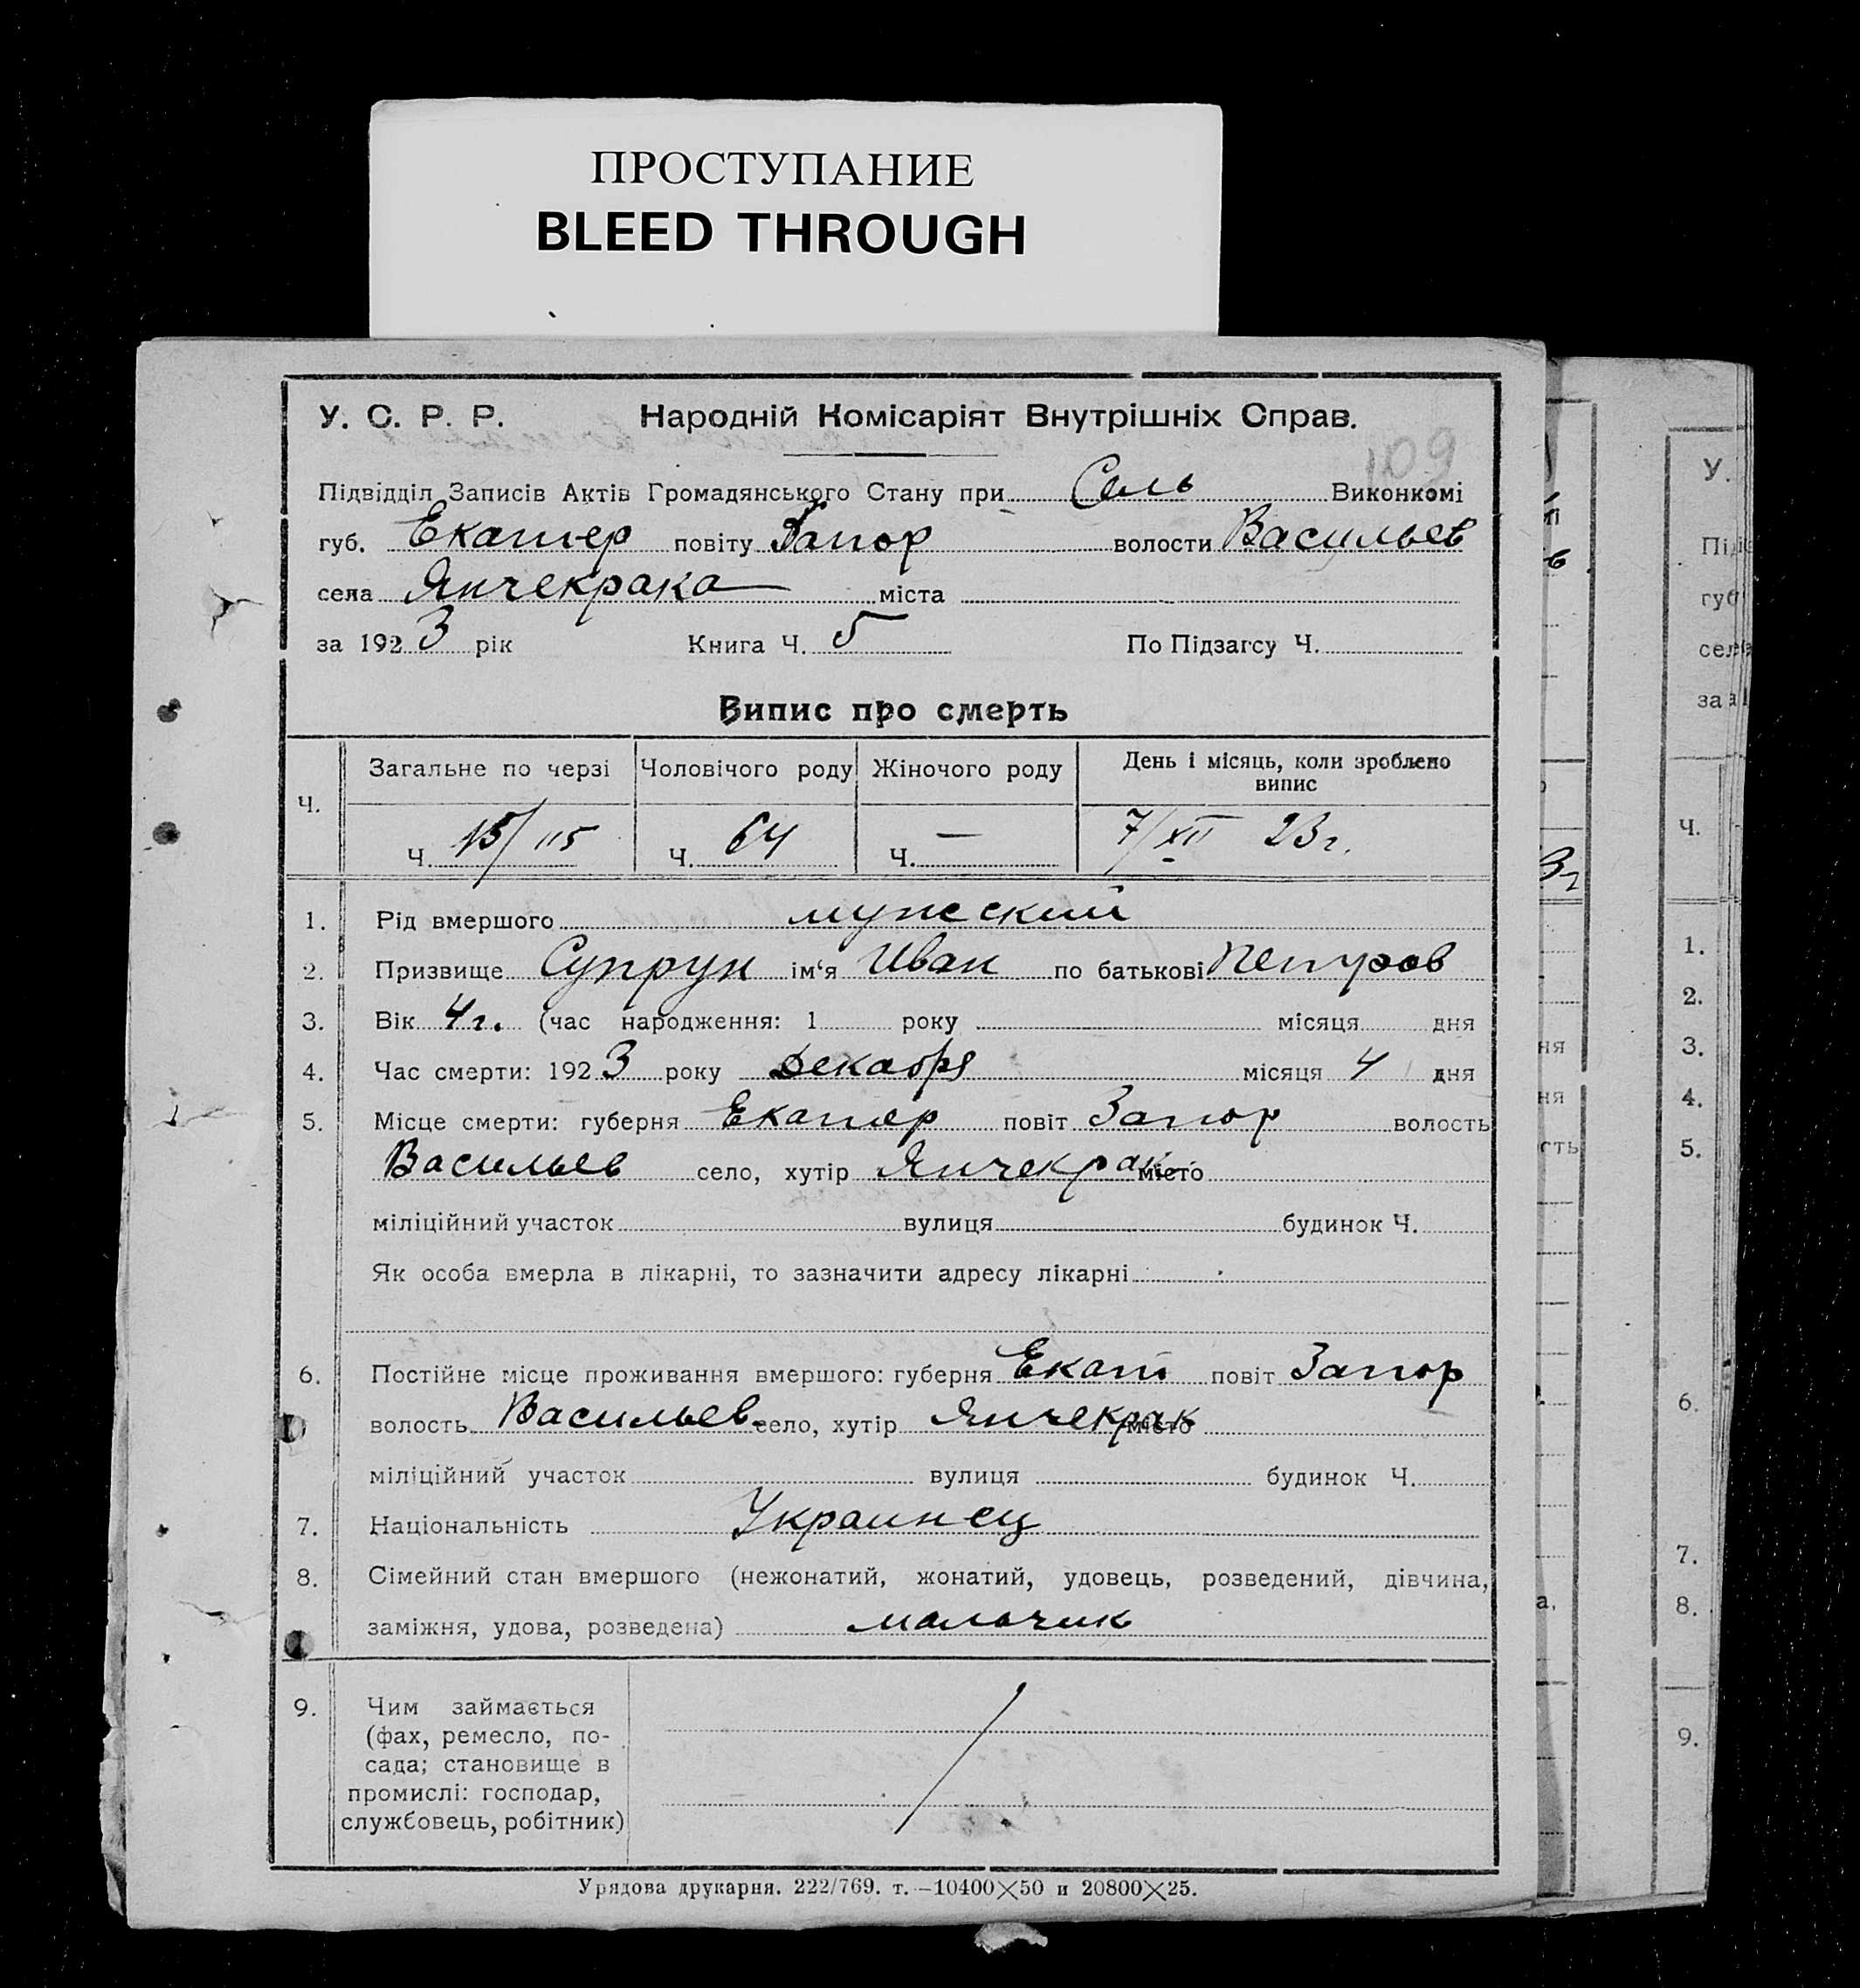 ПРОСТУПАНИЕ
BLEED THROUGH
109
У. С. Р. Р. Народній Комісаріят Внутрішніх Справ.
Підвідділ Записів Актів Громадянського Стану при Сель Виконкомі
губ. Екатер повіту Запор волости Васильев
села Янчекрака міста
за 1923 рік Книга Ч. 5 По Підзагсу Ч.
Випис про смерть
Ч. Загальне по черзі Чоловічого роду Жіночого роду День і місяць, коли зроблено випис
Ч. 15/115 Ч. 64 Ч. — 7/XII 23г.
1. Рід вмершого мужский
2. Призвище Супрун ім‘я Иван по батькові Петров
3. Вік 4 г. (час народження: 1 року місяця дня
4. Час смерти: 1923 року Декабря місяця 4 дня
5. Місце смерти: губерня Екатер повіт Запор волость
Васильев село, хутір Янчекрак місто
міліційний участок вулиця будинок Ч.
Як особа вмерла в лікарні, то зазначити адресу лікарні
6. Постійне місце проживання вмершого: губерня Екат повіт Запор
волость Васильев. село, хутір Янчекрак місто
міліційний участок вулиця будинок Ч.
7. Національність Украинец
8. Сімейний стан вмершого (нежонатий, жонатий, удовець, розведений, дівчина,
заміжня, удова, розведена) мальчик
9. Чим займається
(фах, ремесло, по-
сада; становище в
промислі: господар,
службовець, робітник)
Урядова друкарня. 222/769. т. —10400×50 и 20800×25.